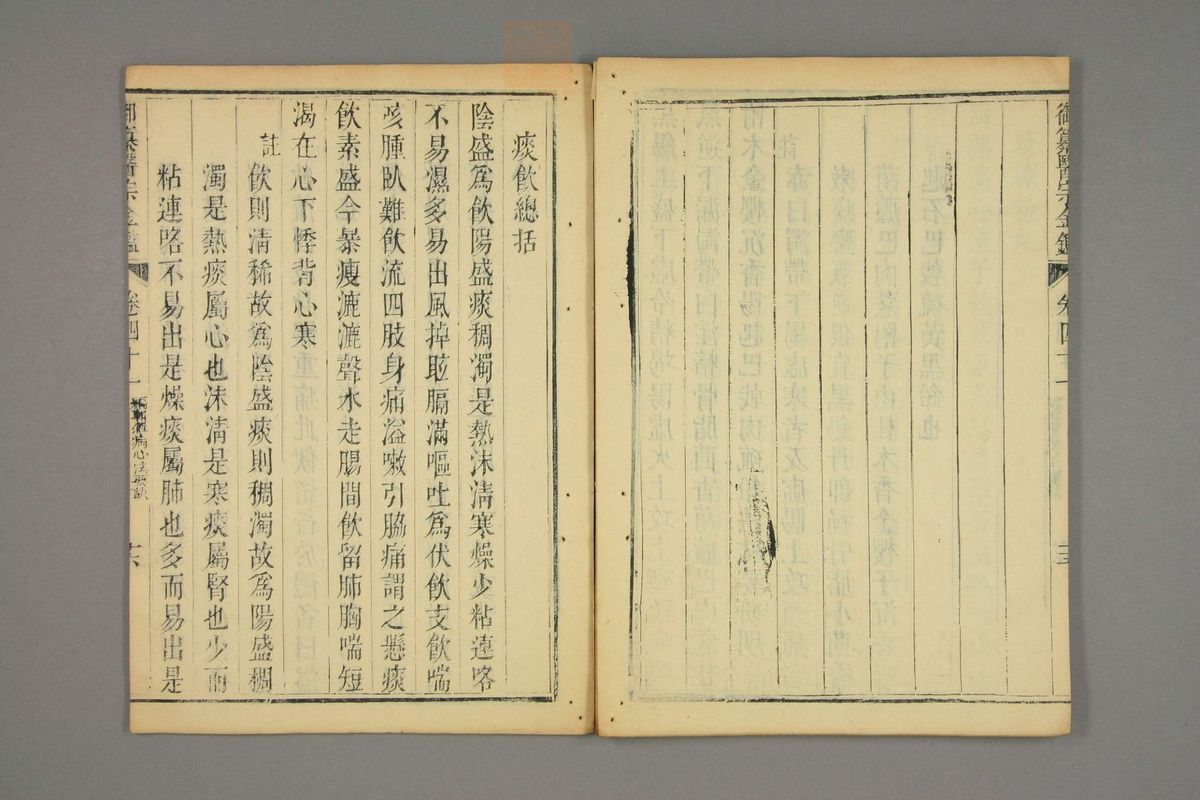 御纂醫宗金鑑
卷四十一
痰飲總括
陰盛爲飲陽盛痰稠濁是熱沫清寒燥少粘連咯
不易濕多易出風掉眩膈滿嘔吐爲伏飲支飲喘
咳腫臥難飲流四肢身痛溢嗽引脇痛謂之懸痰
飲素盛今暴瘦漉漉聲水走腸間飲留肺胸喘短
渴在心下悸背心寒
註
飲則清稀故爲陰盛痰則稠濁故爲陽盛稠
濁是熱痰屬心也沫清是寒痰屬腎也少而
粘連咯不易出是燥痰屬肺也多而易出是
御纂醫宗金鑑
卷四十一
雜病心法要訣
十六